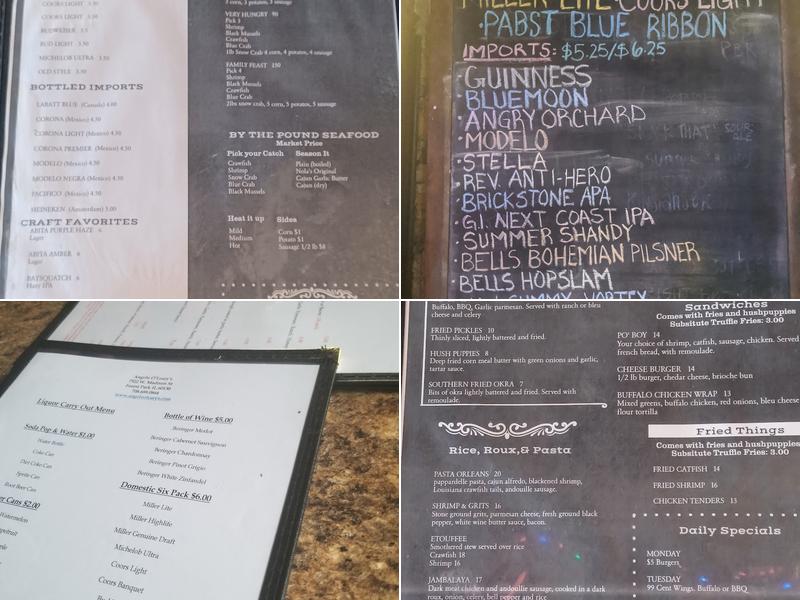 COORS LIGHT 3.50
COORS LIGHT 3.50
BUDWEISER 3.5
BUD LIGHT 3.50
MICHELOB ULTRA 3.50
OLD STYLE 3.50
BOTTLED IMPORTS
LABATT BLUE (Canada) 4.00
CORONA (Mexico) 4.50
CORONA LIGHT (Mexico) 4.50
CORONA PREMIER (Mexico) 4.50
MODELO (Mexico) 4.50
MODELO NEGRA (Mexico) 4.50
PACIFICO (Mexico) 4.50
HEINEKEN (Amsterdam) 5.00
CRAFT FAVORITES
ABITA PURPLE HAZE 6
Lager
ABITA AMBER 6
Lager
BAYSQUATCH 6
Hazy IPA
3 corn, 3 potatoes, 3 sausage
VERY HUNGRY 90
Pick 3
Shrimp
Black Mussels
Crawfish
Blue Crab
1lb Snow Crab 4 corn, 4 potatoes, 4 sausage
FAMILY FEAST 150
Pick 4
Shrimp
Black Mussels
Crawfish
Blue Crab
2lbs snow crab, 5 corn, 5 potatoes, 5 sausage
BY THE POUND SEAFOOD
Market Price
Pick your Catch
Crawfish
Shrimp
Snow Crab
Blue Crab
Black Mussels
Season It
Plain (boiled)
Nola's Original
Cajun Garlic Butter
Cajun (dry)
Heat it up
Mild
Medium
Hot
Sides
Corn $1
Potato $1
Sausage 1/2 lb $8
MILLER LITE COORS LIGHT
PABST BLUE RIBBON
IMPORTS: $5.25/$6.25
GUINNESS
BLUEMOON
ANGRY ORCHARD
MODELO
STELLA
REV. ANTI-HERO
BRICKSTONE APA
G.I. NEXT COAST IPA
SUMMER SHANDY
BELLS BOHEMIAN PILSNER
BELLS HOPSLAM
Angelo O'Leary's
7522 W. Madison St
Forest Park IL,60130
Ligune Carry-Out Menu
Soda Pop & Water $1.00
Water Bottle
Coke Can
Diet Coke Can
Sprite Can
Root Beer Can
Cans $2.00
Watermelon
Bottle of Wine $5.00
Beringer Merlot
Beringer Cabernet Sauvignon
Beringer Chardonnay
Beringer Pinot Grigio
Beringer White Zinfandel
Domestic Six Pack $6.00
Miller Lite
Miller Highlife
Miller Genuine Draft
Michelob Ultra
Coors Light
Coors Banquet
Buffalo, BBQ, Garlic parmesan. Served with ranch or bleu
cheese and celery
FRIED PICKLES 10
Thinly sliced, lightly battered and fried.
HUSH PUPPIES 8
Deep fried corn meal batter with green onions and garlic,
tartar sauce.
SOUTHERN FRIED OKRA 7
Bits of okra lightly battered and fried. Served with
remoulade.
Rice, Roux,& Pasta
PASTA ORLEANS 20
pappardelle pasta, cajun alfredo, blackened shrimp,
Louisiana crawfish tails, andouille sausage.
SHRIMP & GRITS 16
Stone ground grits, parmesan cheese, fresh ground black
pepper, white wine butter sauce, bacon.
ETOUFFEE
Smothered stew served over rice
Crawfish 18
Shrimp 16
JAMBALAYA 17
Dark meat chicken and andouille sausage, cooked in a dark
roux, onion, celery, bell pepper and rice
Sandwiches
Comes with fries and hushpuppies
Subsitute Truffle Fries: 3.00
PO' BOY 14
Your choice of shrimp, catfish, sausage, chicken. Served
french bread, with remoulade.
CHEESE BURGER 14
1/2 lb burger, chedar cheese, brioche bun
BUFFALO CHICKEN WRAP 13
Mixed greens, buffalo chicken, red onions, bleu cheese
flour tortilla
Fried Things
Comes with fries and hushpuppies
Subsitute Truffle Fries: 3.00
FRIED CATFISH 14
FRIED SHRIMP 16
CHICKEN TENDERS 13
Daily Specials
MONDAY
$5 Burgers
TUESDAY
99 Cent Wings. Buffalo or BBQ